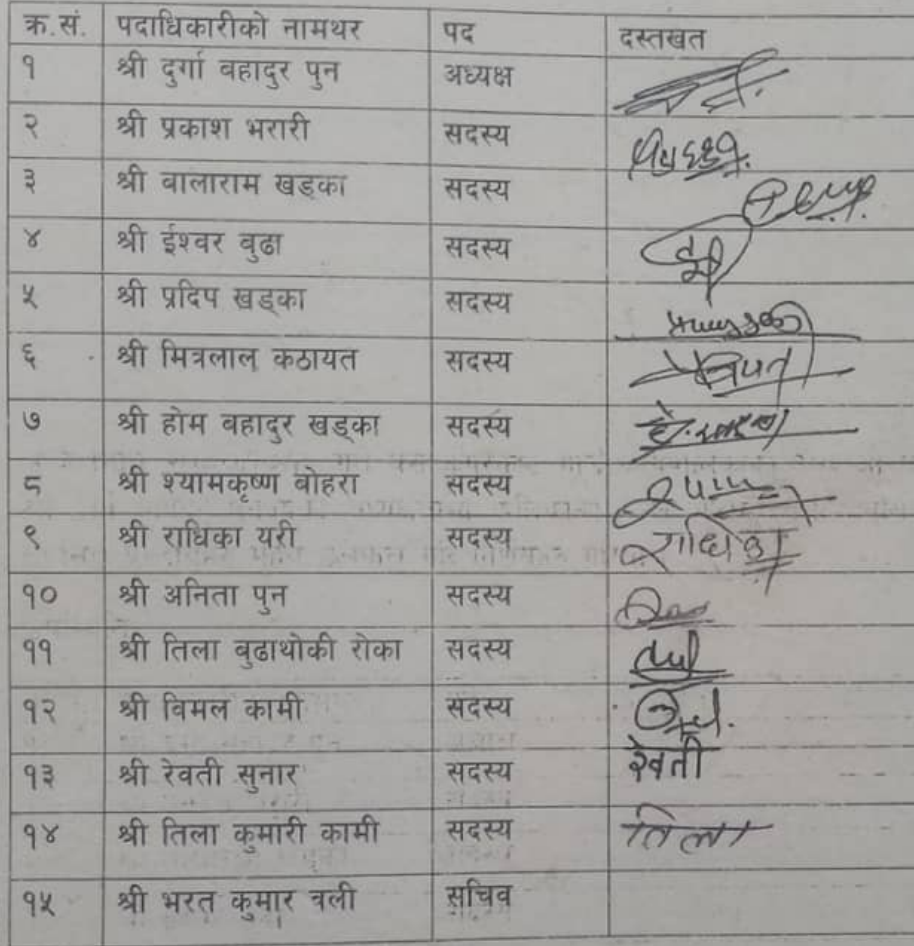 क्र.सं. पदाधिकारीको नामथर पद दस्तखत
१ श्री दुर्गा वहादुर पुन अध्यक्ष
२ श्री प्रकाश भरारी सदस्य
३ श्री वालाराम खड्का सदस्य
४ श्री ईश्वर वुढा सदस्य
५ श्री प्रदिप खड्का सदस्य
६ श्री मित्रलाल कठायत सदस्य
७ श्री होम वहादुर खड्का सदस्य
८ श्री श्यामकृष्ण बोहरा सदस्य
९ श्री राधिका यरी सदस्य राधिका
१० श्री अनिता पुन सदस्य
११ श्री तिला वुढाथोकी रोका सदस्य
१२ श्री विमल कामी सदस्य
१३ श्री रेवती सुनार सदस्य रेवती
१४ श्री तिला कुमारी कामी सदस्य तिला
१५ श्री भरत कुमार वली सचिव